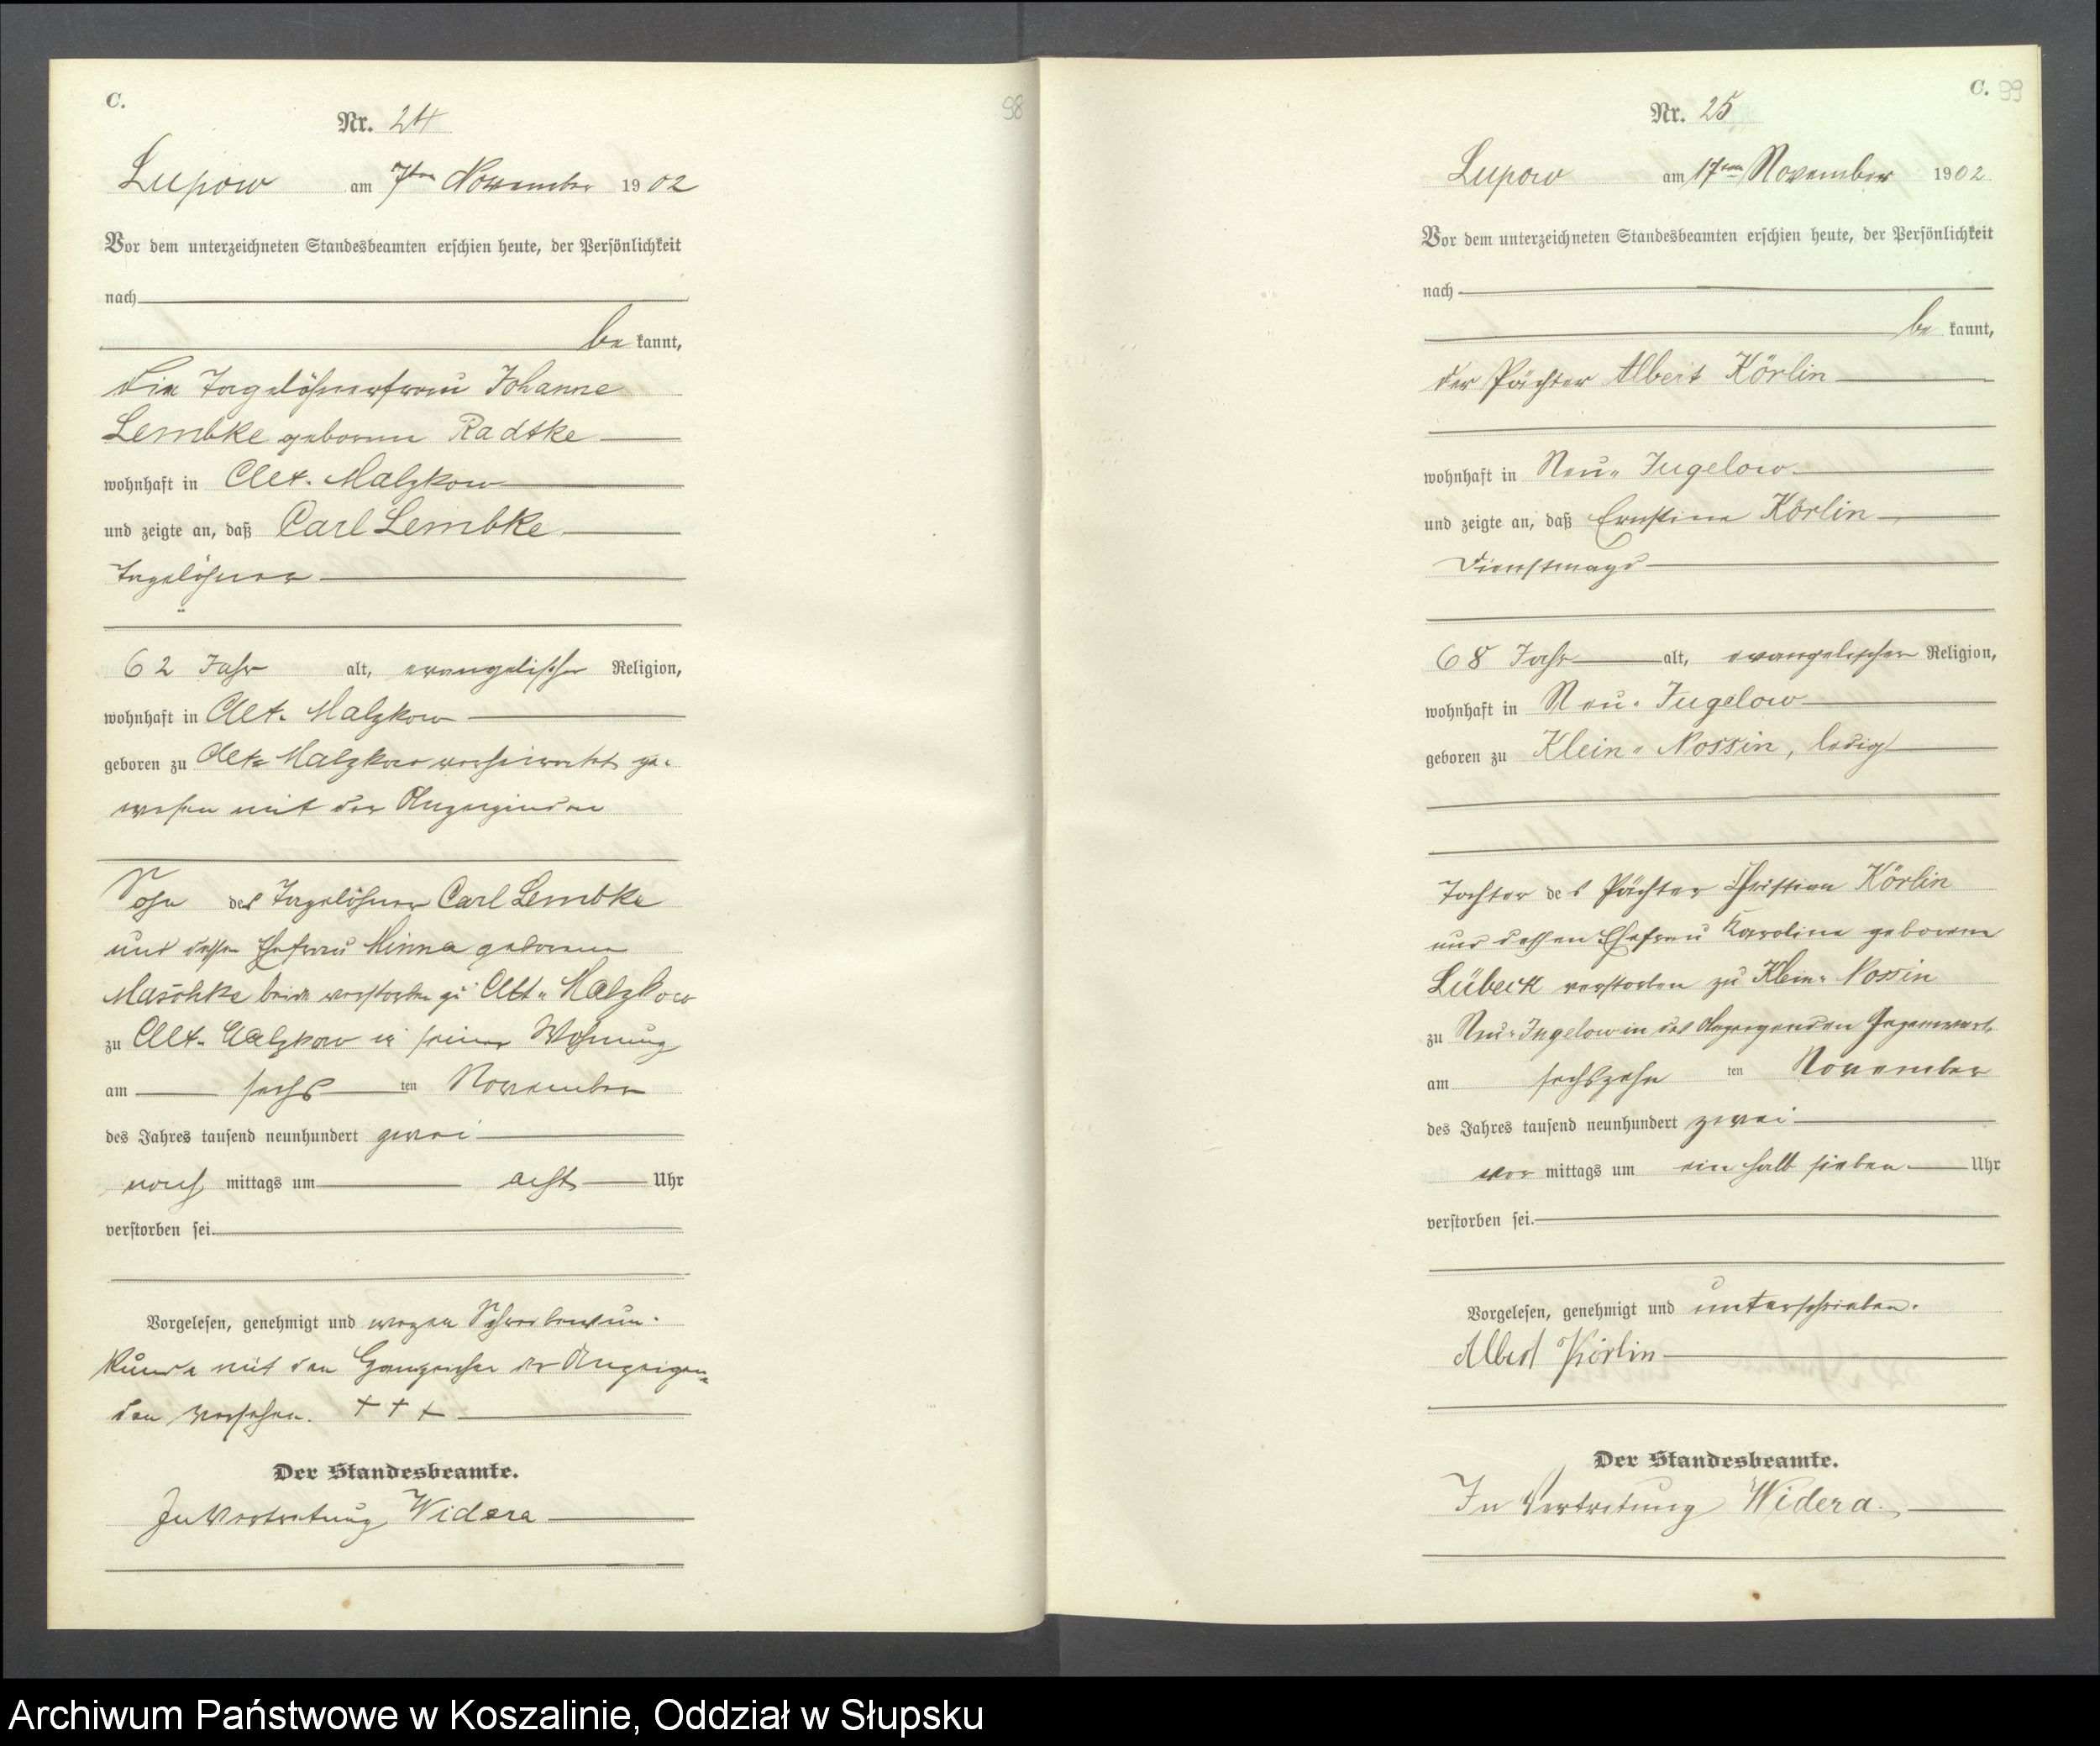 C.
98
Nr. 24
Lupow am 7ten November 1902
Vor dem unterzeichneten Standesbeamten erschien heute, der Persönlichkeit
nach
be kannt,
die Tagelöhnerfrau Johanne
Lembke geborene Radtke
wohnhaft in Alt. Malzkow
und zeigte an, daß Carl Lembke
Tagelöhner
62 Jahr alt, evangelischer Religion,
wohnhaft in Alt. Malzkow
geboren zu Alt= Malzkow verheirathet ge-
wesen mit der Anzeigenden
Sohn des Tagelöhner Carl Lembke
und dessen Ehefrau Minna geborene
Maschke beide verstorben zu Alt= Malzkow
zu Alt- Malzkow in seiner Wohnung
am sechs ten November
des Jahres tausend neunhundert zwei
nach mittags um acht Uhr
verstorben sei.
Vorgelesen, genehmigt und wegen Schreibensun-
kunde mit den Handzeichen der Anzeigen=
den versehen. + + +
Der Standesbeamte.
In Vertretung Widera
C. 99
Nr. 25
Lupow am 17ten November 1902
Vor dem unterzeichneten Standesbeamten erschien heute, der Persönlichkeit
nach
be kannt,
der Pächter Albert Körlin
wohnhaft in Neu= Jugelow
und zeigte an, daß Ernstine Körlin
Dienstmagd
68 Jahr alt, evangelischer Religion,
wohnhaft in Neu- Jugelow
geboren zu Klein= Nossin, ledig
Tochter des Pächter Christian Körlin
und dessen Ehefrau Karoline geborene
Lübeck verstorben zu Klein= Nossin
zu Neu= Jugelow in des Anzeigenden Gegenwart
am sechszehn ten November
des Jahres tausend neunhundert zwei
vor mittags um ein halb sieben Uhr
verstorben sei.
Vorgelesen, genehmigt und unterschrieben.
Albert Körlin
Der Standesbeamte.
In Vertretung Widera.
Archiwum Państwowe w Koszalinie, Oddział w Słupsku